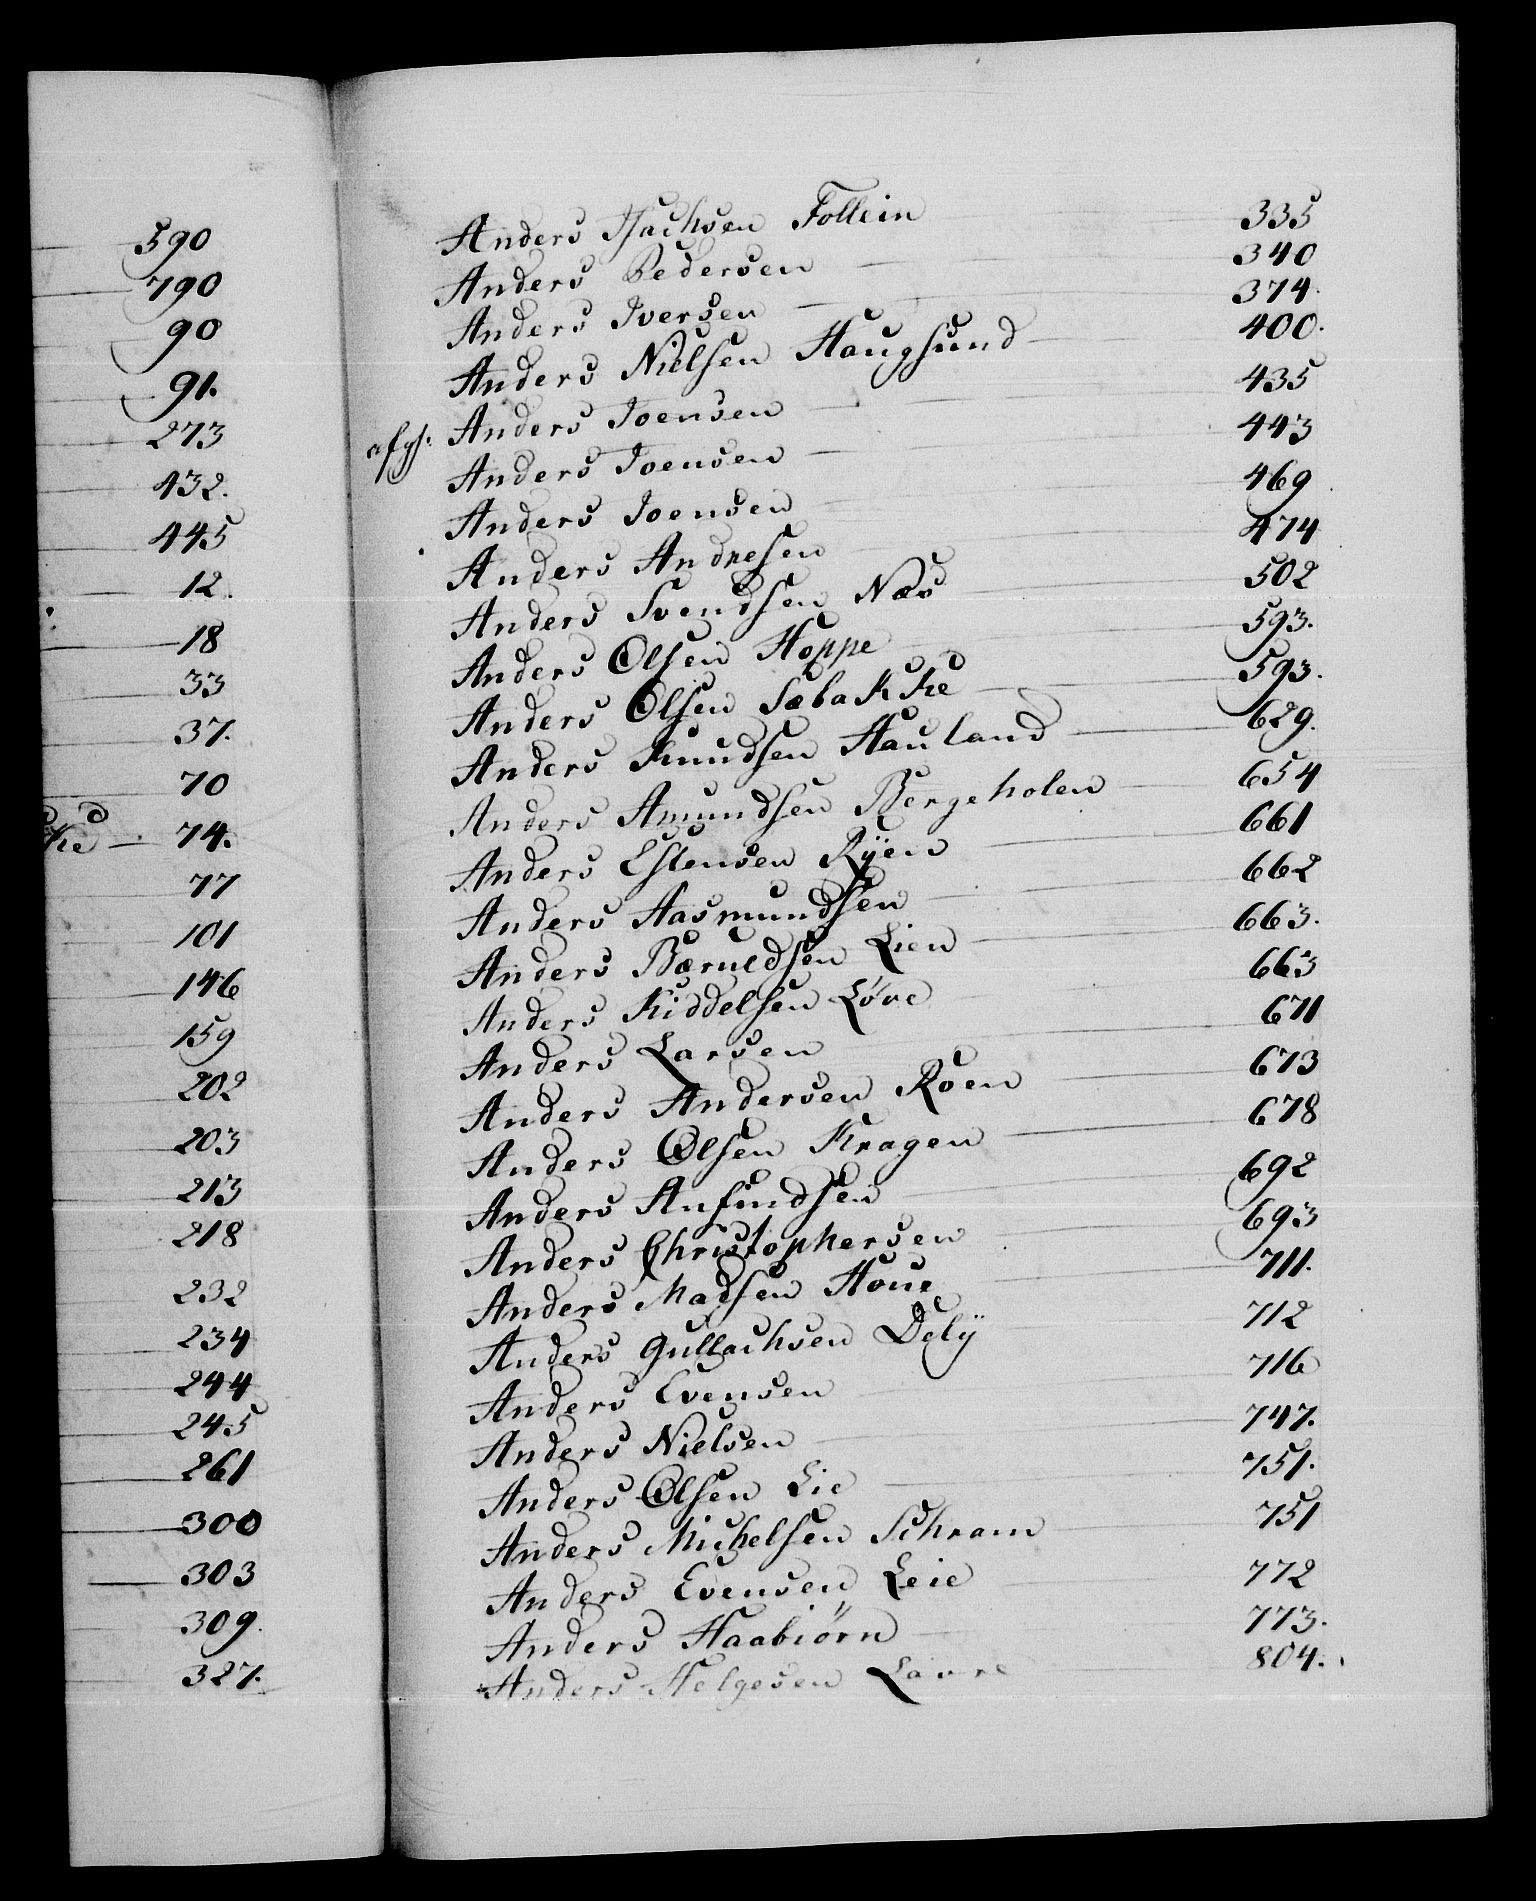 590
790
90
91.
273
432.
445
12.
18
33
37.
70
74.
77
101
146
159
202
203
213
218
232
234
244
245
261
300
303
309.
327.
Anders Isachsen Follein 335
Anders Pedersen 340
Anders Iversen 374.
Anders Nielsen Haugsund 400.
afg: Anders Joensen 435
Anders Joensen 443
Anders Joensen 469
Anders Andresen 474
Anders Svendsen Næs 502
Anders Olsen Hoppe 593.
Anders Olsen Sæbakke 593.
Anders Knudsen Hauland 629.
Anders Amundsen Bergeholen 654
Anders Estensen Rÿen 661
Anders Aasmundsen 662
Anders Bæruldsen Lien 663.
Anders Kiddelsen Løve 663
Anders Larsen 671
Anders Andersen Roen 673
Anders Olsen Kragen 678
Anders Anfindsen 692
Anders Christophersen 693
Anders Madsen Houe 711.
Anders Gullachsen Delÿ 712
Anders Evensen 716
Anders Nielsen 747.
Anders Olsen Lie 751.
Anders Michelsen Schram 751
Anders Evensen Leie 772
Anders Haabiørn 773.
Anders Helgesen Laure 804.